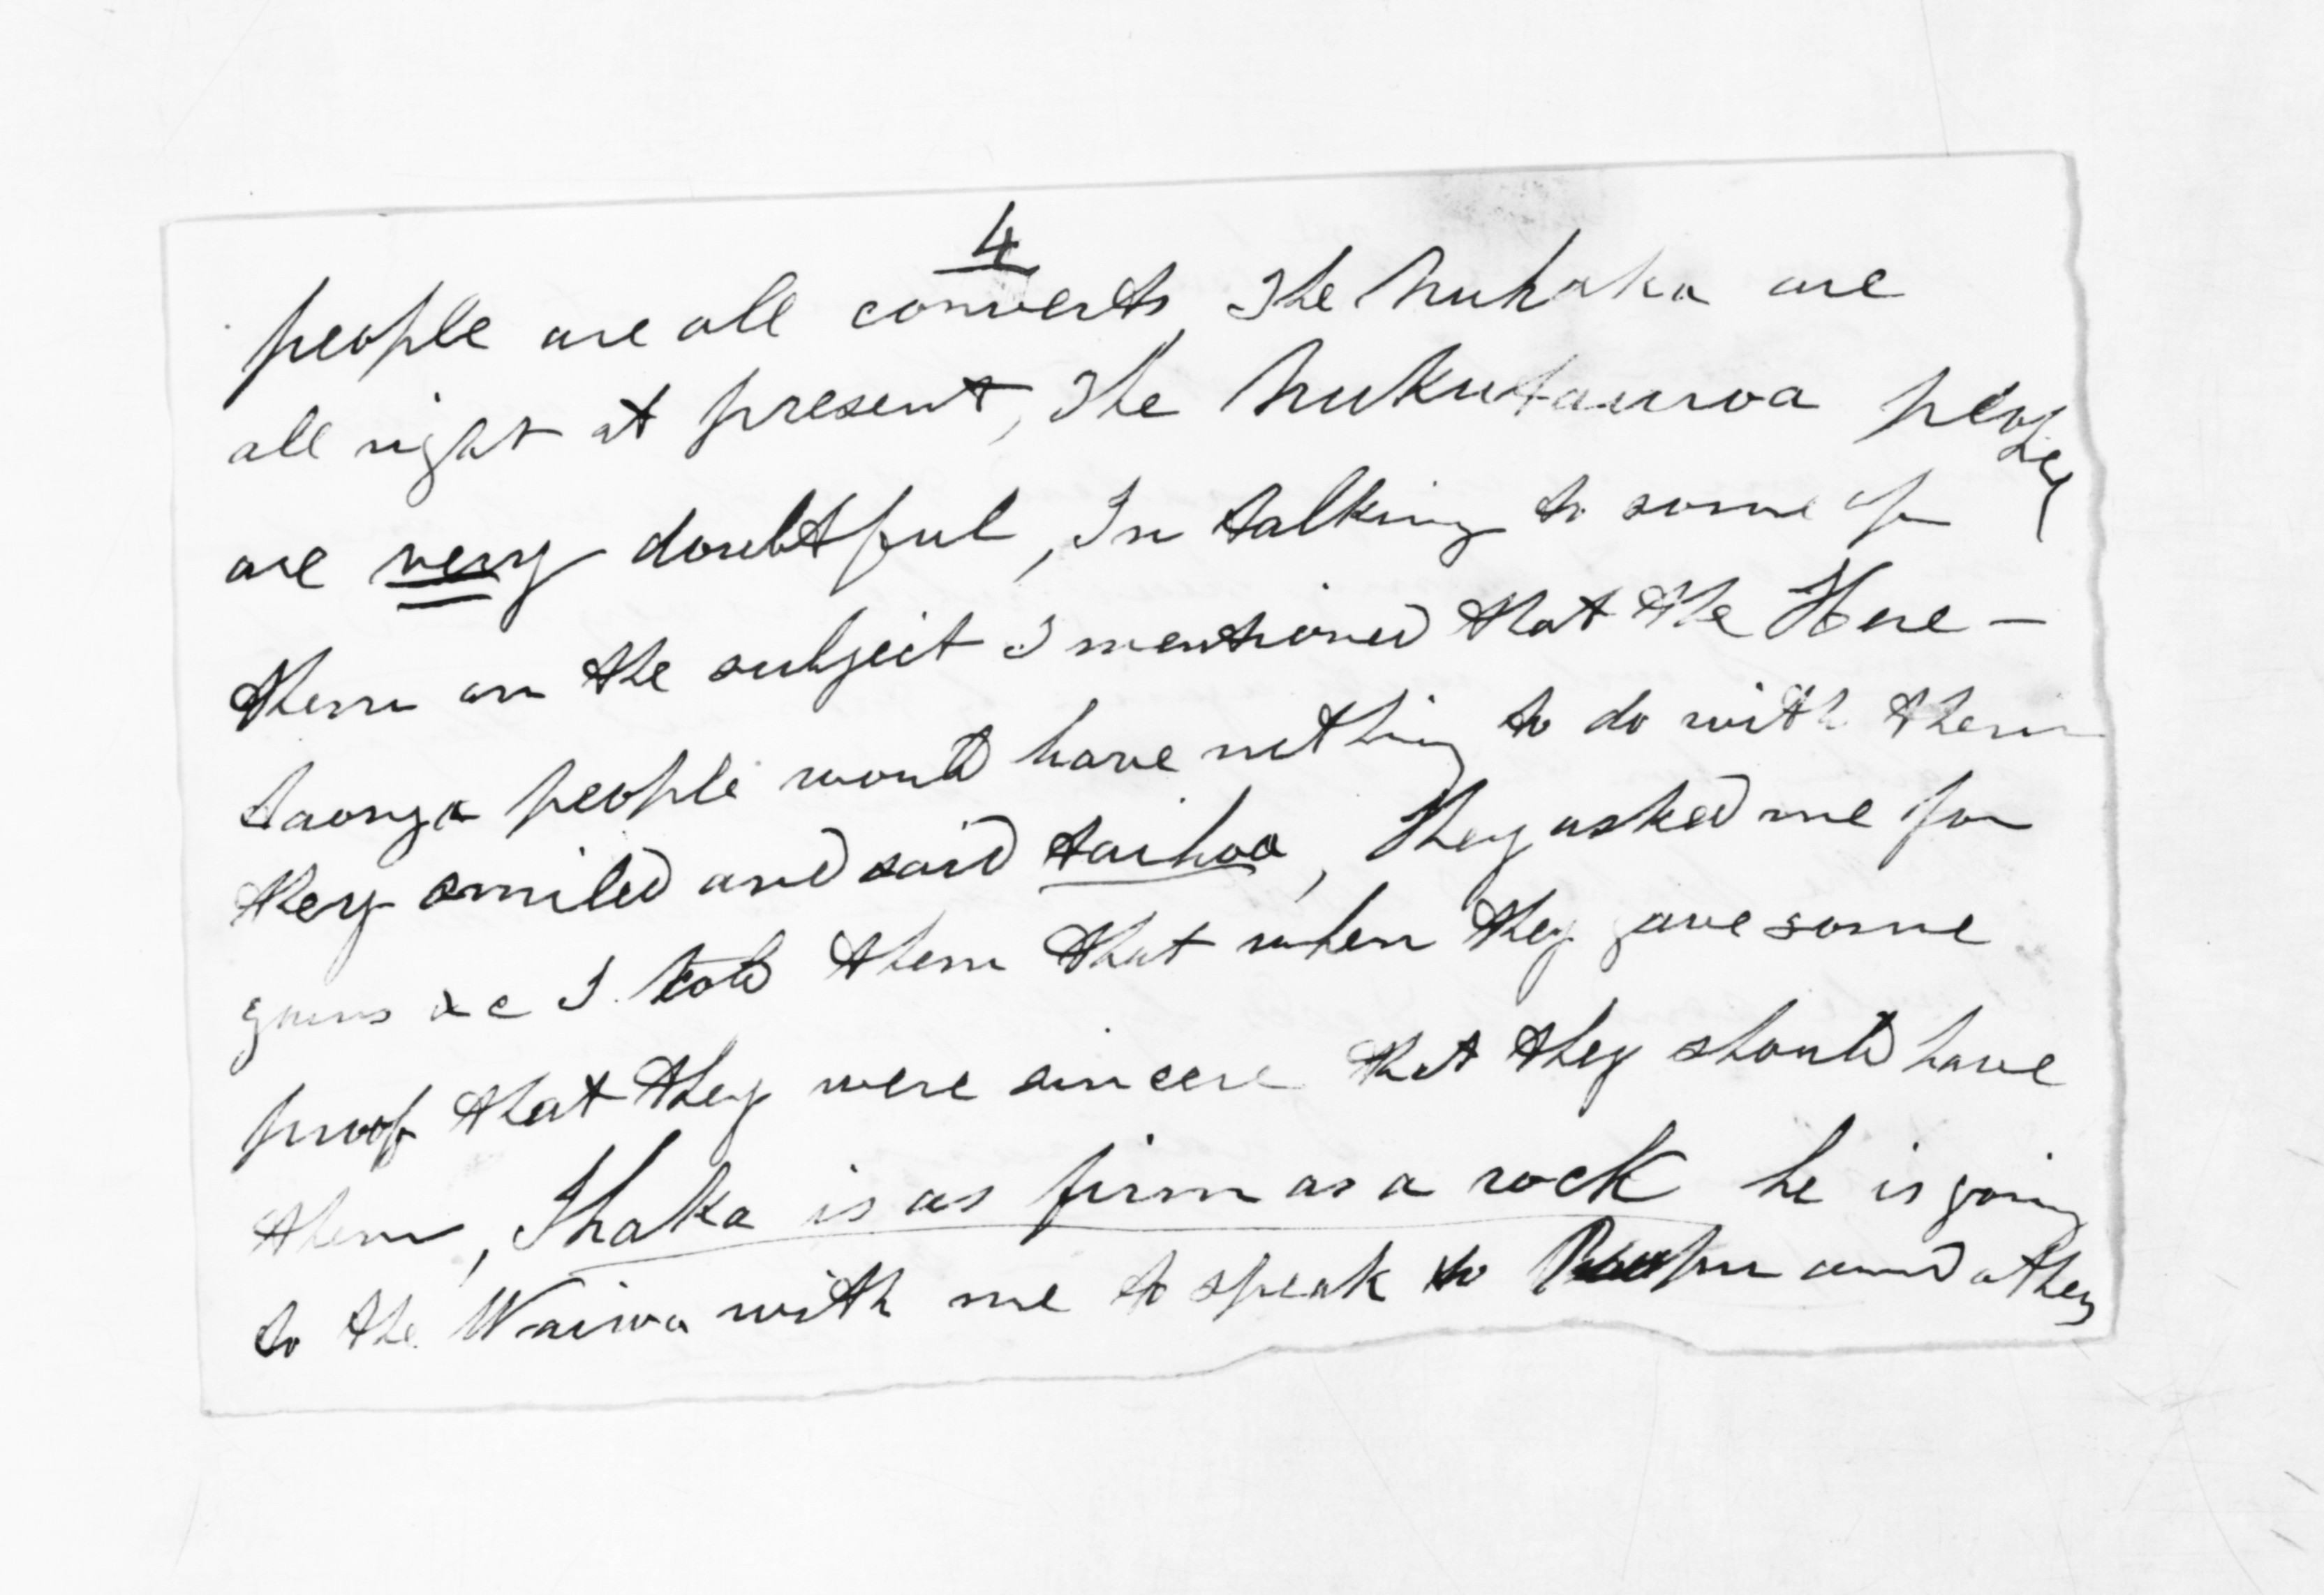 4
people are all converts, The Nuhaka are
all right at present, The Nukutaurua people
are very doubtful, In talking to some of
them on the subject I mentioned that the Here-
taonga people would have nothing to do with them
they smiled and said taihoa, They asked me for
guns &c I told them that when they gave some
proof that they were sincere that they should have
them, Ihaka is as firm as a rock he is going
to the Wairoa with me to speak to and others